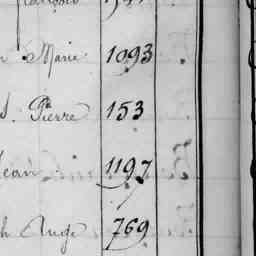 Marie 1093
S. Pierre 153
Jean 1197
h Ange 769